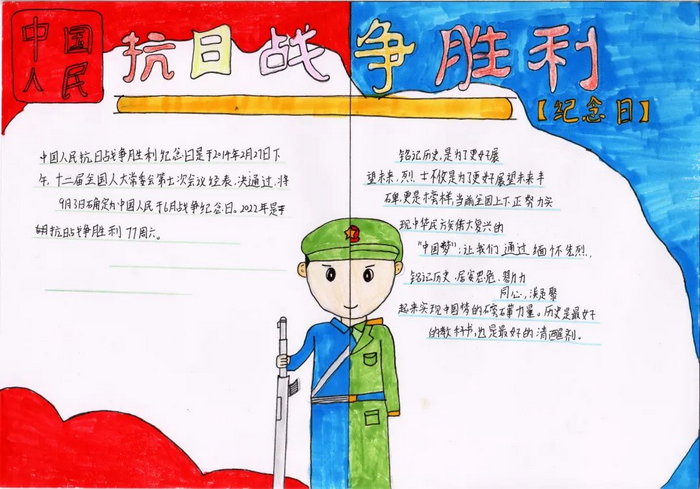 中国
人民
抗日战争胜利
【纪念日】
中国人民抗日战争胜利纪念日是于2014年2月27日下
午,十二届全国人大常委会第七次会议经表,决通过,将
9月3日确定为中国人民于6月战争纪念日。2022年是
抗日战争胜利77周六。
铭记历史,是为了更好展
望未来,烈!士不仅是为了更好展望未来丰
石碑,更是木旁样,当前全国上下,正努力实
现中华民族伟大复兴的
“中国梦”;让我们通过缅怀先烈,
铭记历史、居安思危、努力
同心,
起来实现中国梦的石旁石薄力量。历史是最好
的教科书,也是最好的清醒剂。